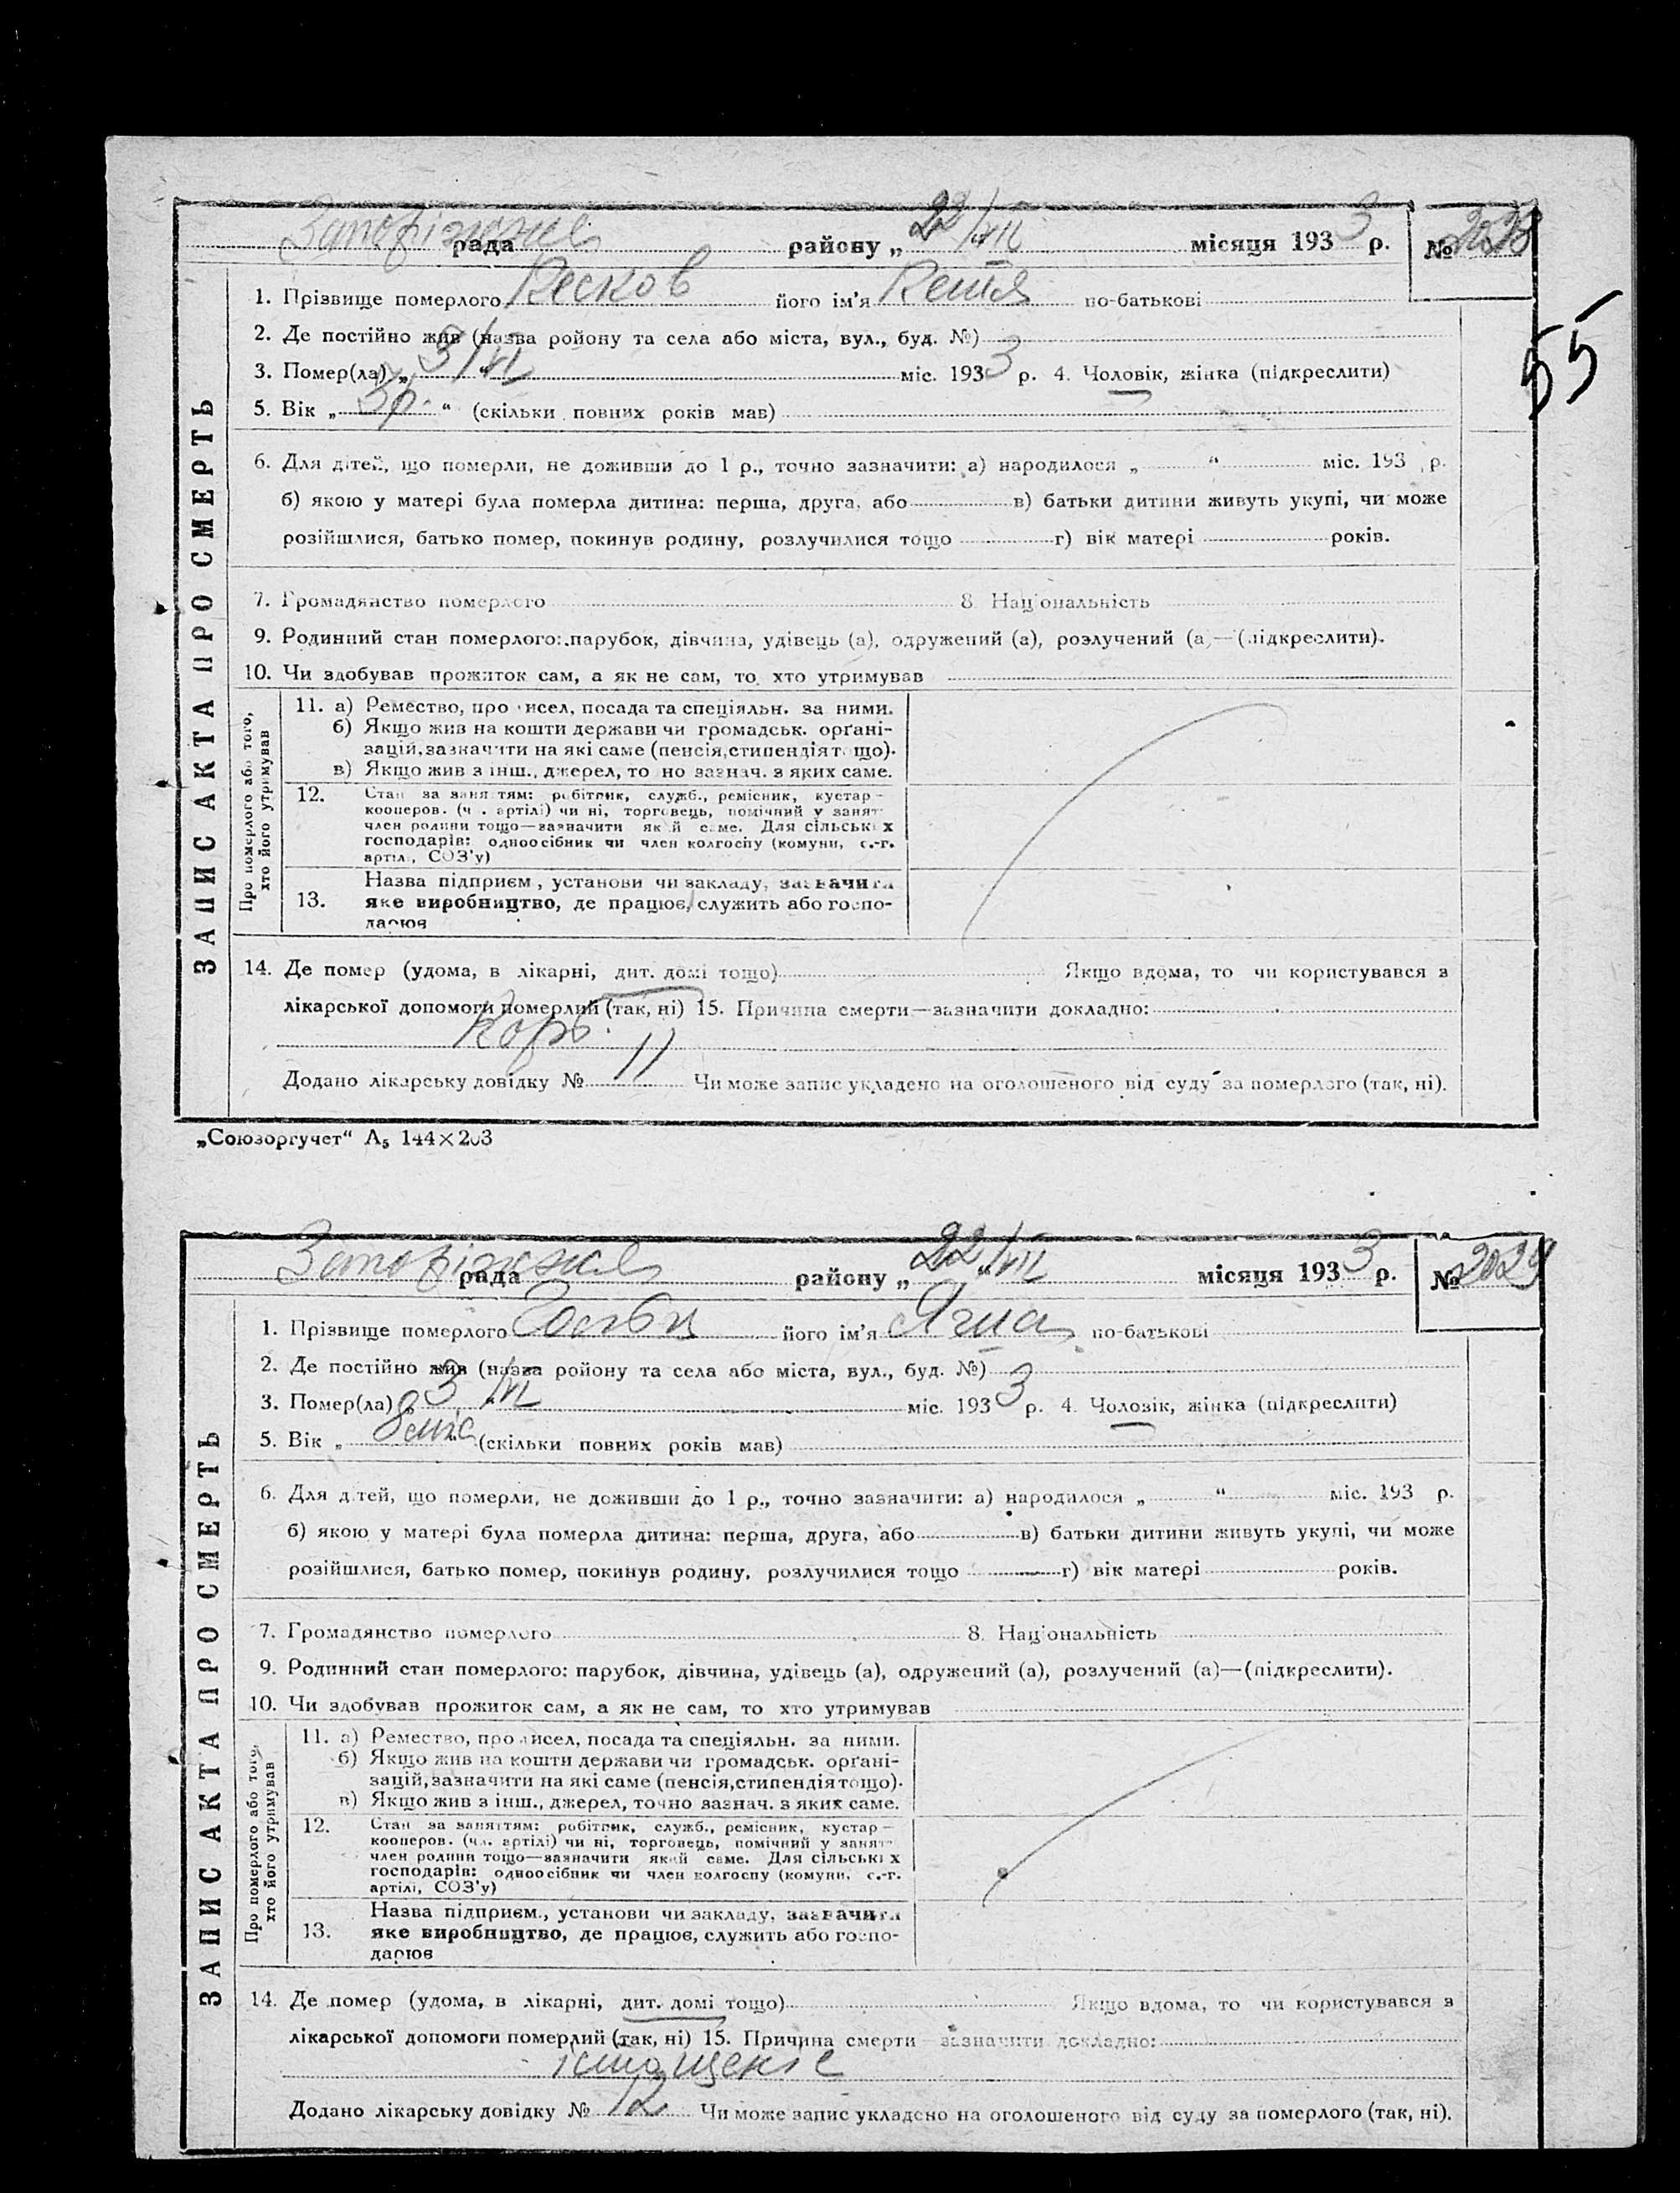 рада району „ 22 /VII місяця 193 3 р. №
55
1. Прізвище померлого його ім'я по-батькові
2. Де постійно жив (назва ройону та села або міста, вул., буд. №)
3. Помер(ла) „ 3/VII “ міс. 193 3 р. 4. Чоловік, жінка (підкреслити)
5. Вік „ 3 р. “ (скільки повних років мав)
6. Для дітей, що померли, не доживши до 1 р., точно зазначити: а) народилося „ “ міс. 193 р.
б) якою у матері була померла дитина: перша, друга, або в) батьки дитини живуть укупі, чи може
розійшлися, батько помер, покинув родину, розлучилися тощо г) вік матері років.
7. Громадянство померлого 8. Національність
9. Родинний стан померлого: парубок, дівчина, удівець (а), одружений (а), розлучений (а)—(підкреслити).
10. Чи здобував прожиток сам, а як не сам, то хто утримував
ЗАПИС АКТА ПРО СМЕРТЬ
Про померлого або того, хто його утримував
11. а) Ремество, промисел, посада та спеціяльн. за ними.
б) Якщо жив на кошти держави чи громадськ. орґані-
зацій, зазначити на які саме (пенсія, стипендія тощо).
в) Якщо жив з інш., джерел, точно зазнач. з яких саме.
12. Стан за заняттям: робітник, служб., ремісник, кустар—
кооперов. (чл. артілі) чи ні, торговець, помічний у занят-
член родини тощо—зазначити який саме. Для сільських
господарів: одноосібник чи член колгоспу (комуни, с.-г.
артілі, СОЗ'у)
13. Назва підприєм., установи чи закладу, зазначити
яке виробництво, де працює, служить або госпо-
дарює
14. Де помер (удома, в лікарні, дит. домі тощо) Якщо вдома, то чи користувався з
лікарської допомоги померлий (так, ні) 15. Причина смерти—зазначити докладно:
Додано лікарську довідку № 11 Чи може запис укладено на оголошеного від суду за померлого (так, ні).
„Союзоргучет“ А₅ 144×203
рада району „ 22 /VII місяця 193 3 р. № 2029
1. Прізвище померлого його ім'я по-батькові
2. Де постійно жив (назва ройону та села або міста, вул., буд. №)
3. Помер(ла) „ 3 /VII “ міс. 193 3 р. 4. Чоловік, жінка (підкреслити)
5. Вік „ 8 міс “ (скільки повних років мав)
6. Для дітей, що померли, не доживши до 1 р., точно зазначити: а) народилося „ “ міс. 193 р.
б) якою у матері була померла дитина: перша, друга, або в) батьки дитини живуть укупі, чи може
розійшлися, батько помер, покинув родину, розлучилися тощо г) вік матері років.
7. Громадянство померлого 8. Національність
9. Родинний стан померлого: парубок, дівчина, удівець (а), одружений (а), розлучений (а)—(підкреслити).
10. Чи здобував прожиток сам, а як не сам, то хто утримував
ЗАПИС АКТА ПРО СМЕРТЬ
Про померлого або того, хто його утримував
11. а) Ремество, промисел, посада та спеціяльн. за ними.
б) Якщо жив на кошти держави чи громадськ. орґані-
зацій, зазначити на які саме (пенсія, стипендія тощо).
в) Якщо жив з інш., джерел, точно зазнач. з яких саме.
12. Стан за заняттям: робітник, служб., ремісник, кустар—
кооперов. (чл. артілі) чи ні, торговець, помічний у занят-
член родини тощо—зазначити який саме. Для сільських
господарів: одноосібник чи член колгоспу (комуни, с.-г.
артілі, СОЗ'у)
13. Назва підприєм., установи чи закладу, зазначити
яке виробництво, де працює, служить або госпо-
дарює
14. Де помер (удома, в лікарні, дит. домі тощо) Якщо вдома, то чи користувався з
лікарської допомоги померлий (так, ні) 15. Причина смерти—зазначити докладно:
істощеніє
Додано лікарську довідку № 12 Чи може запис укладено на оголошеного від суду за померлого (так, ні).